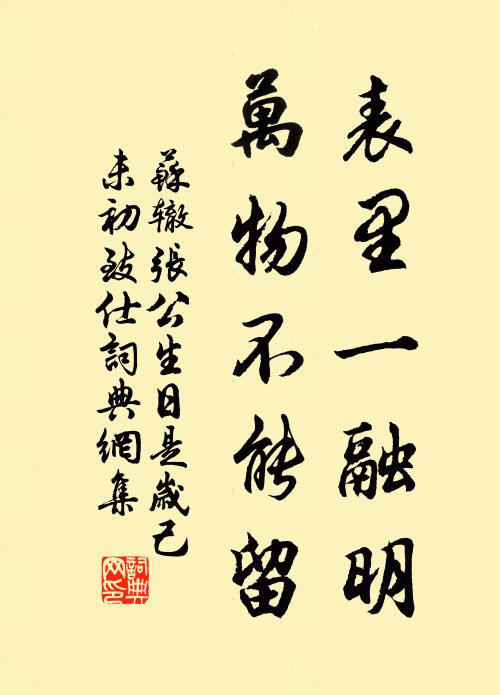 表里一融明
萬物不能留
蘇辙張公生日是歲己
未初致仕詞典網集
詞典
网印